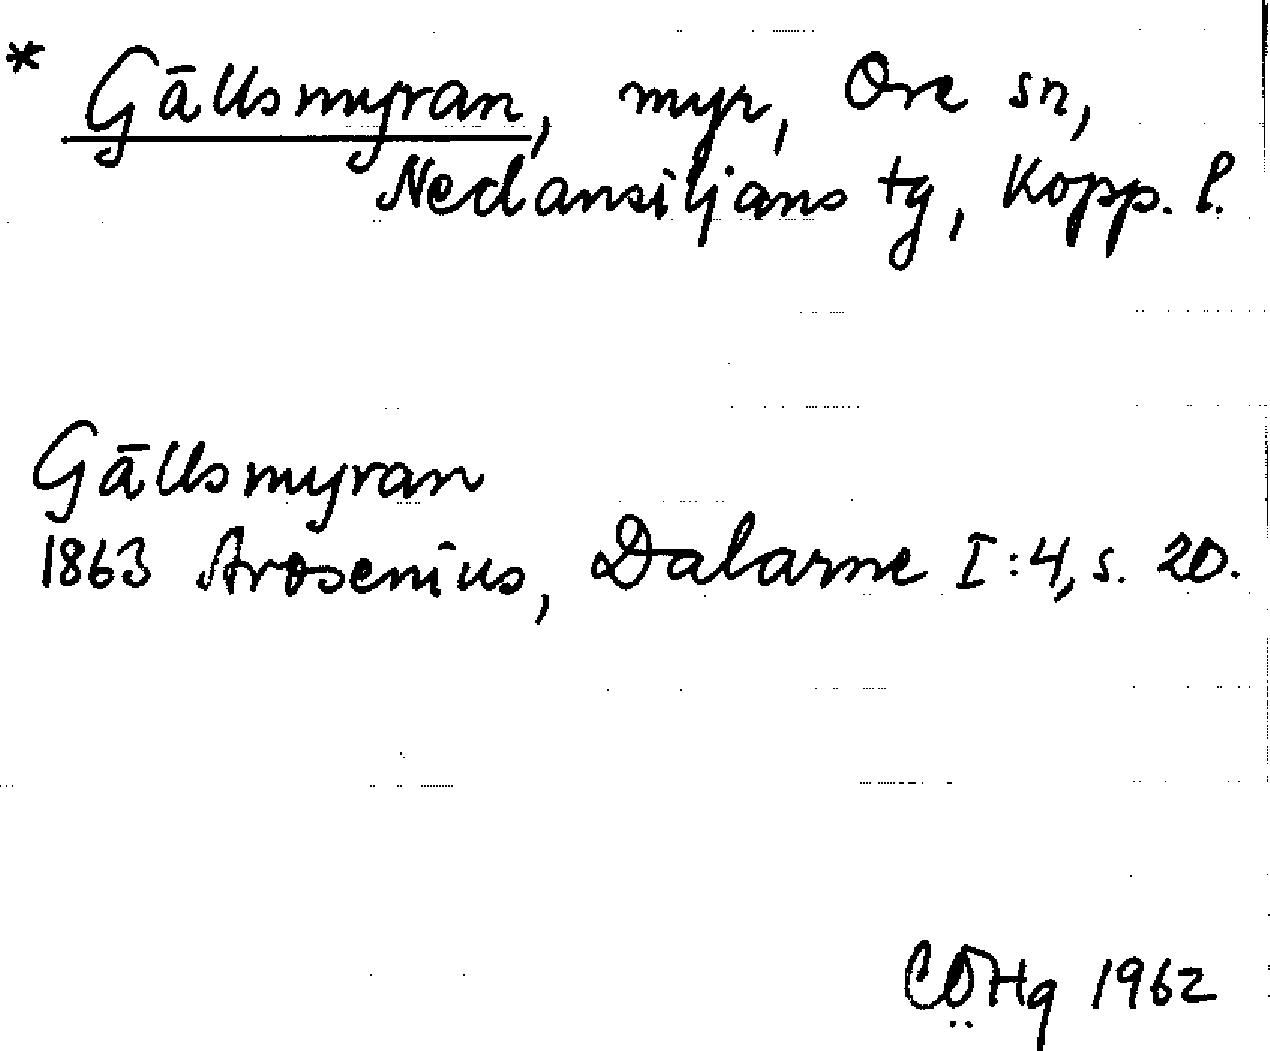 * Gällsmyran, myr, Ore sn,
Nedansiljans tg, Kopp. l.
Gällsmyran
1863 Arosenius, Dalarne I:4, s. 20.
CÖHg 1962